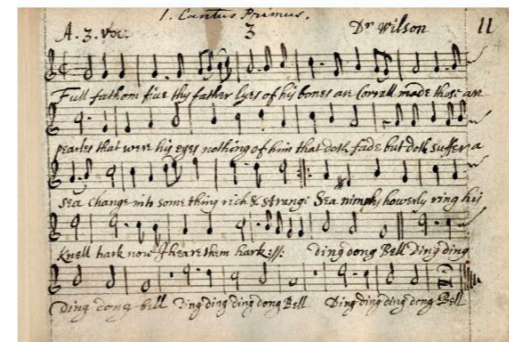 1. Cantus Primus.
A. 3. Voc.
3
Dr Wilson
11
Full fathom five thy father lyes of his bones are Corrall made those are
pearles that were his eyes nothing of him that doth fade but doth suffer a
Sea change into something rich & strange Sea nimphs howerly ring his
Knell hark now I heare them hark :||: ding dong Bell Ding ding
Ding dong bell Ding ding ding dong Bell Ding ding ding dong Bell